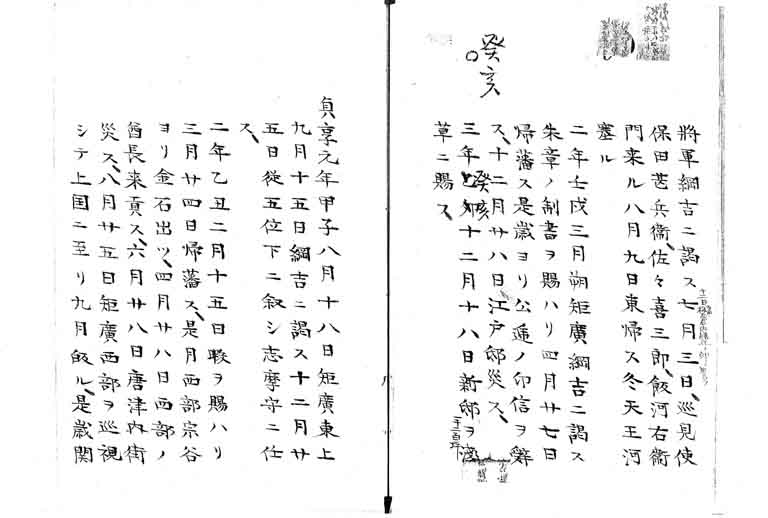 癸亥
将軍綱吉ニ謁ス七月三日、巡見使
保田甚兵衞、佐々喜三郎、飯河右衞
門来ル八月九日東帰ス冬天王河
塞ル
二年壬戌三月朔矩廣綱吉ニ謁ス
朱章ノ制書ヲ賜ハリ四月廿七日
帰藩ス是歳ヨリ公逓ノ印信ヲ
ス、十二月廿八日江戸邸災ス、
三年癸亥十二月十八日新邸ヲ
草ニ賜ス、
貞享元年甲子八月十八日矩廣東上
九月十五日綱吉ニ謁ス十二月廿
五日従五位下ニ叙シ志摩守ニ任
ス、
二年乙丑二月十五日暇ヲ賜ハリ
三月廿四日帰藩ス、是月西部宗谷
ヨリ金石出ツ、四月廿八日西部ノ
酋長来貢ス、六月廿八日唐津内街
災ス、八月廿五日矩廣西部ヲ巡視
シテ上国ニ至リ九月飯ル、是歳関